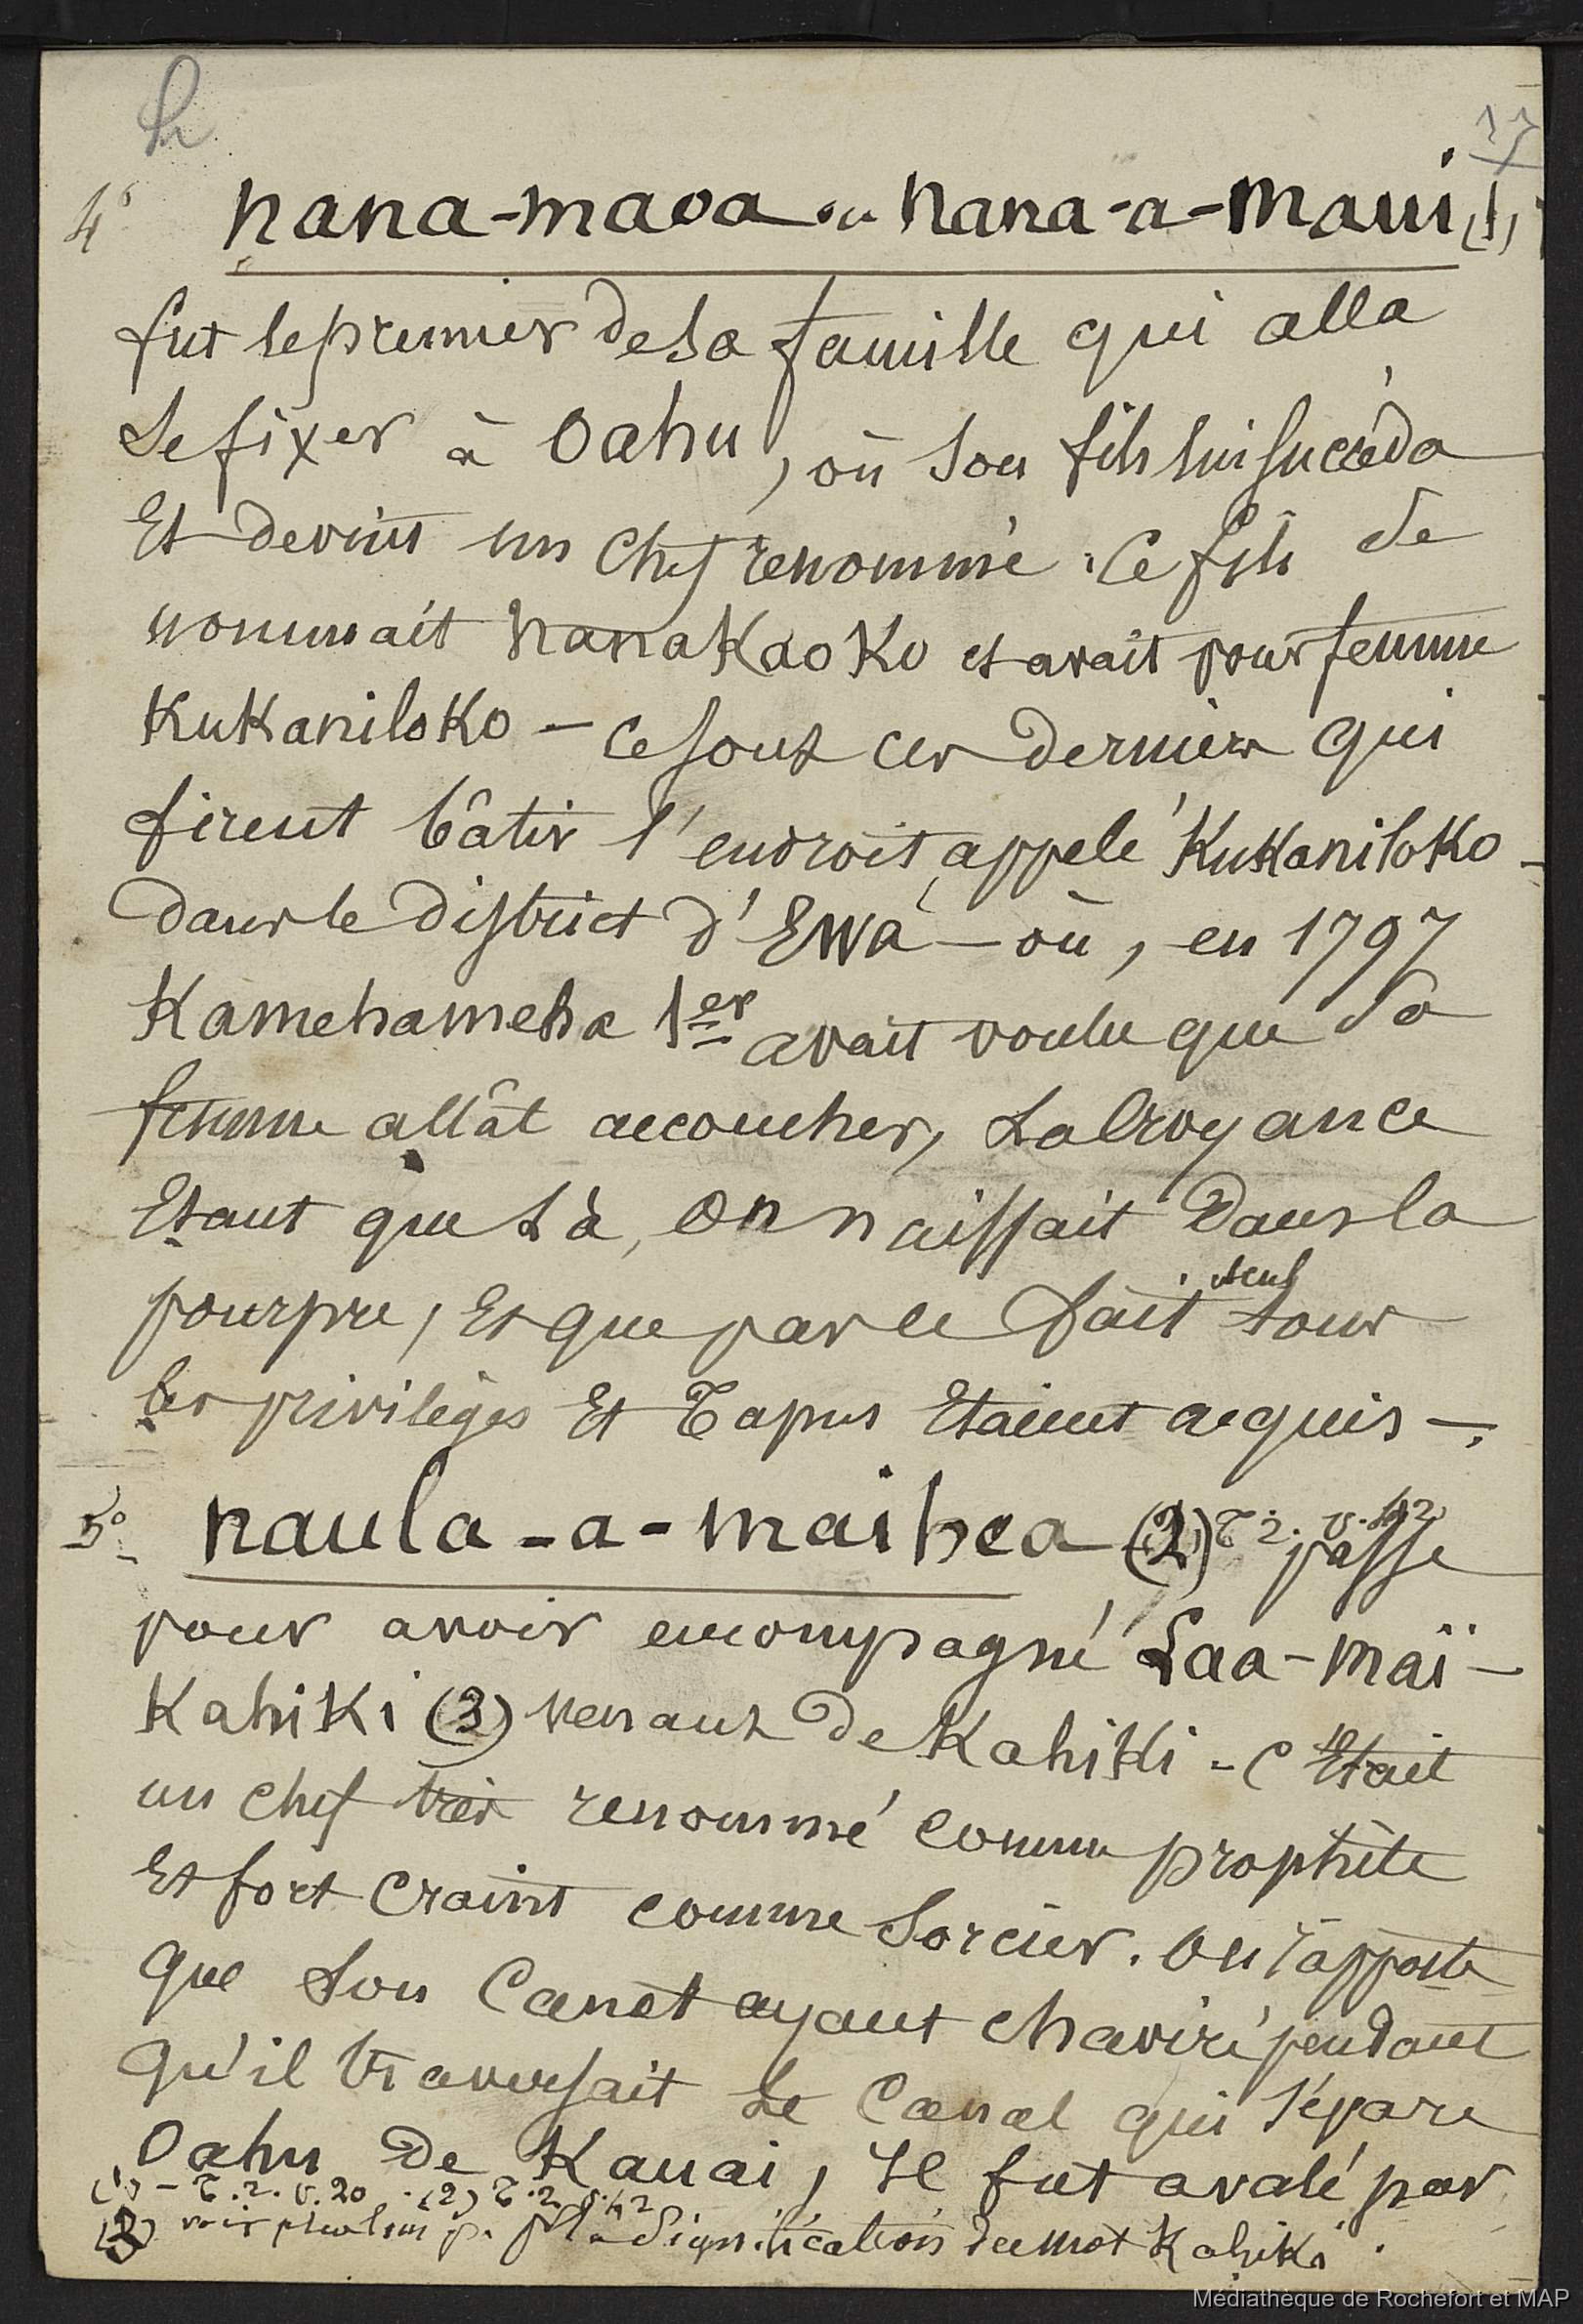 h
17
4° nana-maoa ou nana-a-maui (1)
fut le premier de sa famille qui alla
se fixer à Oahu, où son fils lui succéda
Et devint un chef renommé. Ce fils se
nommait nanaKaoKo et avait pour femme
KuKaniloKo – ce sont ces derniers qui
firent bâtir l'endroit appelé KuKaniloKo –
dans le district d'Ewa – où, en 1797
Kamehameha 1er avait voulu que sa
femme allât accoucher, la croyance
Etant que là, on naissait dans la
pourpre, Et que par ce fait seul tous
les privilèges Et Tapus Etaient acquis –.
5° naula-a-maihea (2) T. 2. v. 42 passe
pour avoir accompagné Laa-maï-
KahiKi (3) venant de KahiKi – C'Etait
un chef très renommé comme prophète
Et fort craint comme sorcier. On rapporte
que son Canot ayant chaviré pendant
qu'il traversait le Canal qui sépare
Oahu de Kauai, Il fut avalé par
(1) – T. 2. v. 20 . (2) T. 2. v. 42
(3) voir plus loin p. pr la signification du mot Kahiki.
Médiathèque de Rochefort et MAP